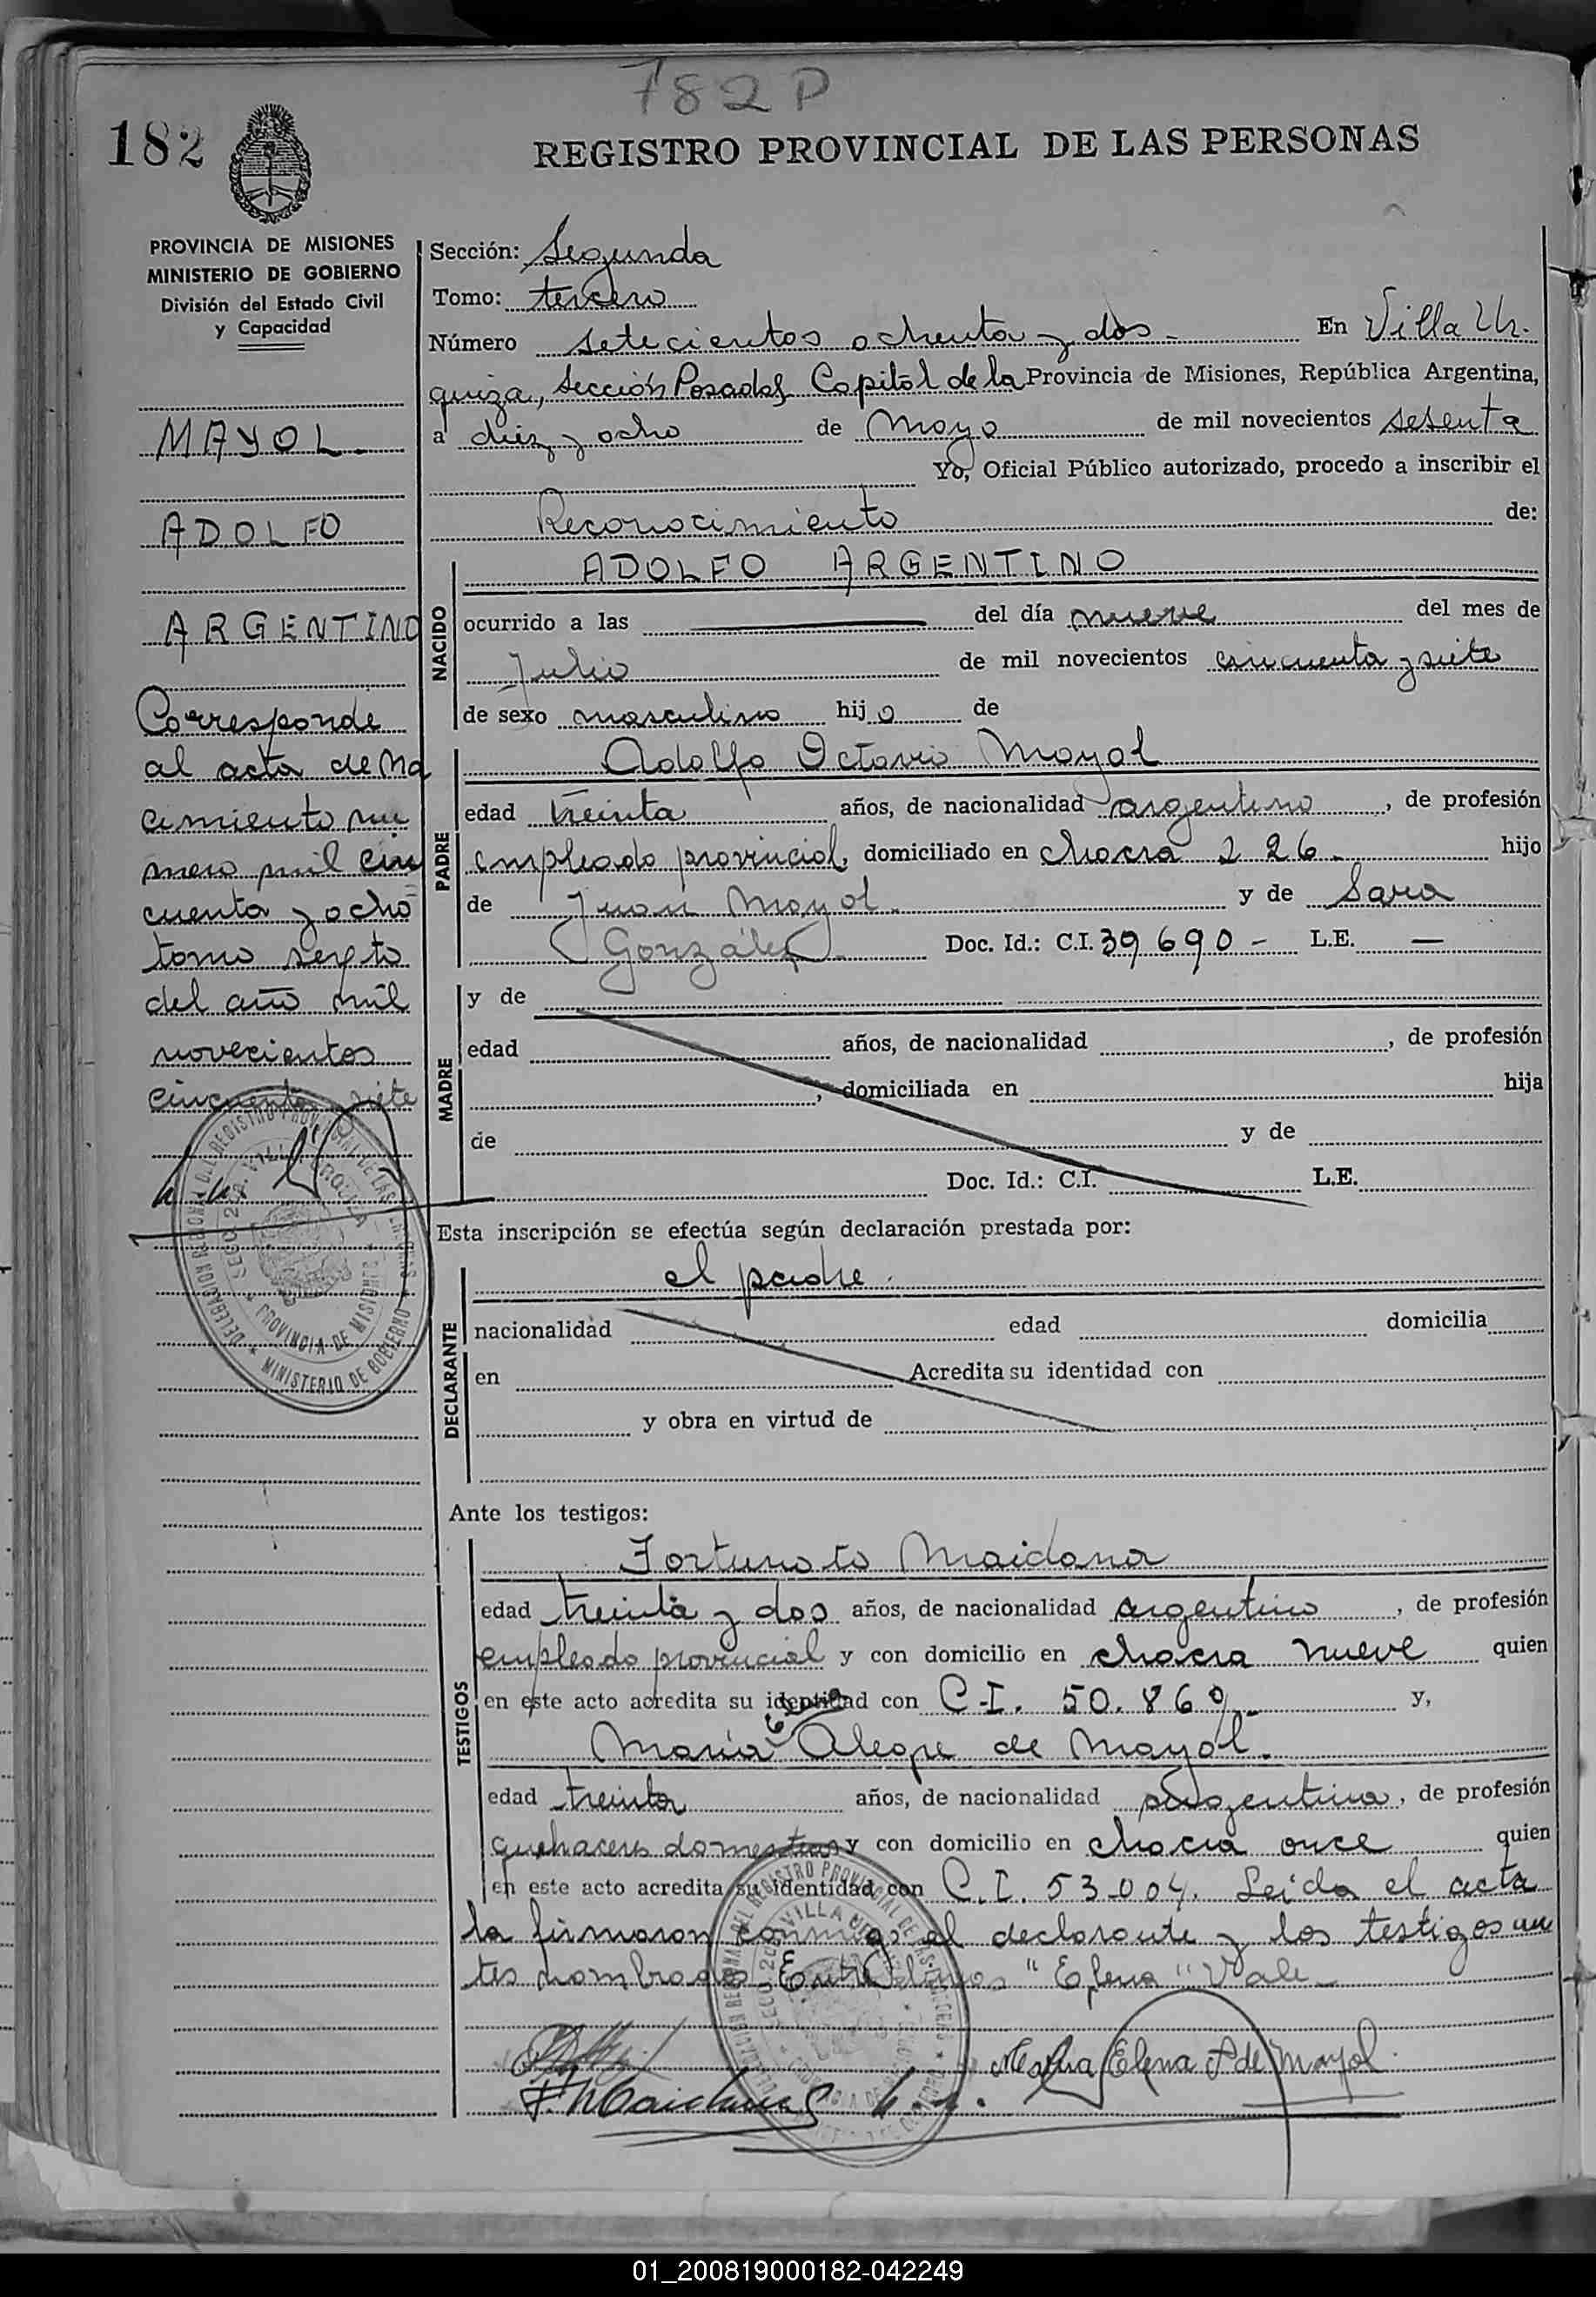 782 P
182
REGISTRO PROVINCIAL DE LAS PERSONAS
PROVINCIA DE MISIONES
MINISTERIO DE GOBIERNO
División del Estado Civil
y Capacidad
MAYOL
ADOLFO
ARGENTINO
Corresponde
al acta de na
cimiento nu
mero mil cin
cuenta y ocho
tomo sexto
del año mil
novecientos
cincuenta siete
Sección: Segunda
Tomo: tercero
Número setecientos ochenta y dos - En Villa Ur-
quiza, Sección Posadas Capital de la Provincia de Misiones, República Argentina,
a diez y ocho de Mayo de mil novecientos sesenta
Yo, Oficial Público autorizado, procedo a inscribir el
Reconocimiento de:
NACIDO
ADOLFO ARGENTINO
ocurrido a las del día nueve del mes de
Julio de mil novecientos cincuenta y siete
de sexo masculino hijo de
PADRE
Adolfo Octavio Mayol
edad treinta años, de nacionalidad argentino, de profesión
empleado provincial, domiciliado en chacra 226- hijo
de Juan Mayol y de Sara
González Doc. Id.: C.I. 39690 - L.E. —
MADRE
y de
edad años, de nacionalidad , de profesión
, domiciliada en hija
de y de
Doc. Id.: C.I. L.E.
Esta inscripción se efectúa según declaración prestada por:
DECLARANTE
el padre
nacionalidad edad domicilia
en Acredita su identidad con
y obra en virtud de
Ante los testigos:
TESTIGOS
Fortunato Maidana
edad treinta y dos años, de nacionalidad argentino, de profesión
empleado provincial y con domicilio en chacra nueve quien
en este acto acredita su identidad con C.I. 50.869- y,
Elena
María de Mayol.
edad treinta años, de nacionalidad argentina, de profesión
quehaceres domesticos y con domicilio en chacra once quien
en este acto acredita su identidad con C.I. 53.004. Leida el acta
la firmaron conmigo el declarante y los testigos an
tes nombrados Entre lineas "Elena" Vale-
Elena de Mayol
F. Maidana
DELEGACION REGIONAL DEL REGISTRO PROVINCIAL DE LAS PERSONAS
SECC. 2da. VILLA URQUIZA
PROVINCIA DE MISIONES
MINISTERIO DE GOBIERNO
01_200819000182-042249